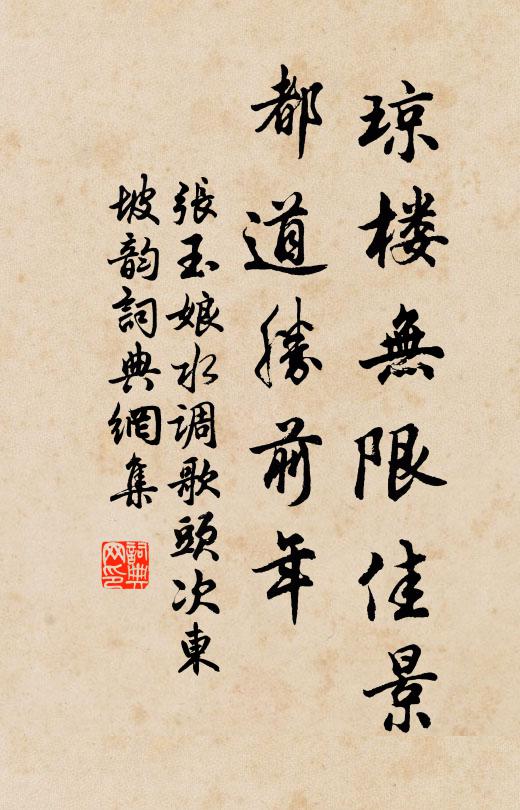 琼楼無限佳景
都道勝前年
張玉娘水调歌頭次東
坡韵詞典網集
詞典
网印